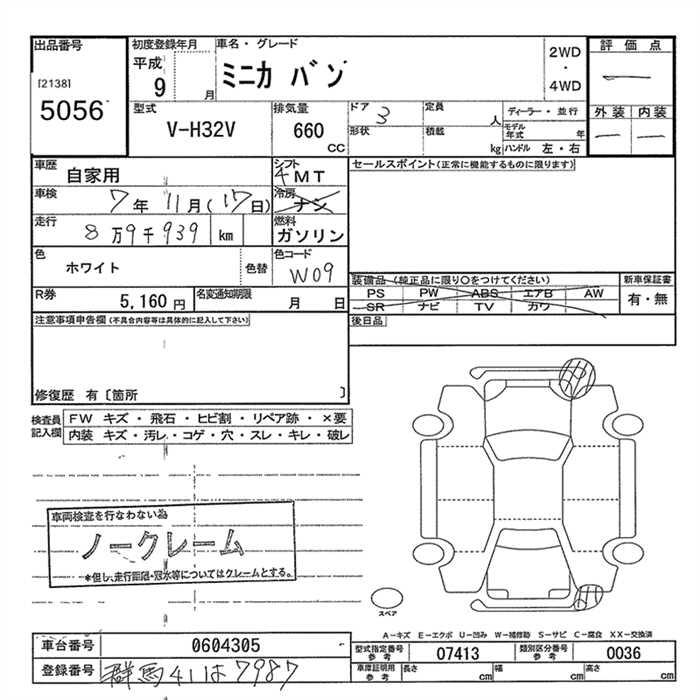 出品番号
[2138]
5056
初度登録年月
平成
9 月
車名・グレード
ミニカ バン
2WD
・
4WD
評価点
―
外装 内装
― ―
型式
V-H32V
排気量
660
CC
ドア 3
形状
定員 人
積載 kg
ディーラー・並行
モデル年式 年
ハンドル 左・右
車歴 自家用
シフト 4MT
車検 7年11月(17日)
冷房 ナシ
走行 8万9千939 km
燃料 ガソリン
色 ホワイト 色替
色コード W09
R券 5,160円
名変通知期限 月 日
セールスポイント(正常に機能するものに限ります)
装備品 (純正品に限り〇をつけてください)
PS PW ABS エアB AW
SR ナビ TV カワ
新車保証書
有・無
後日品
注意事項申告欄 (不具合内容等は具体的に記入して下さい)
修復歴 有〔箇所 〕
検査員記入欄
FW キズ・飛石・ヒビ割・リペア跡・×要
内装 キズ・汚レ・コゲ・穴・スレ・キレ・破レ
車両検査を行なわない為
ノークレーム
*但し、走行距離・冠水等についてはクレームとする。
スペア
A-キズ E-エクボ U-凹み W-補修跡 S-サビ C-腐食 XX-交換済
車台番号 0604305
登録番号 群馬41は7987
型式指定番号参考 07413
類別区分番号参考 0036
車庫証明用参考
長さ cm
幅 cm
高さ cm